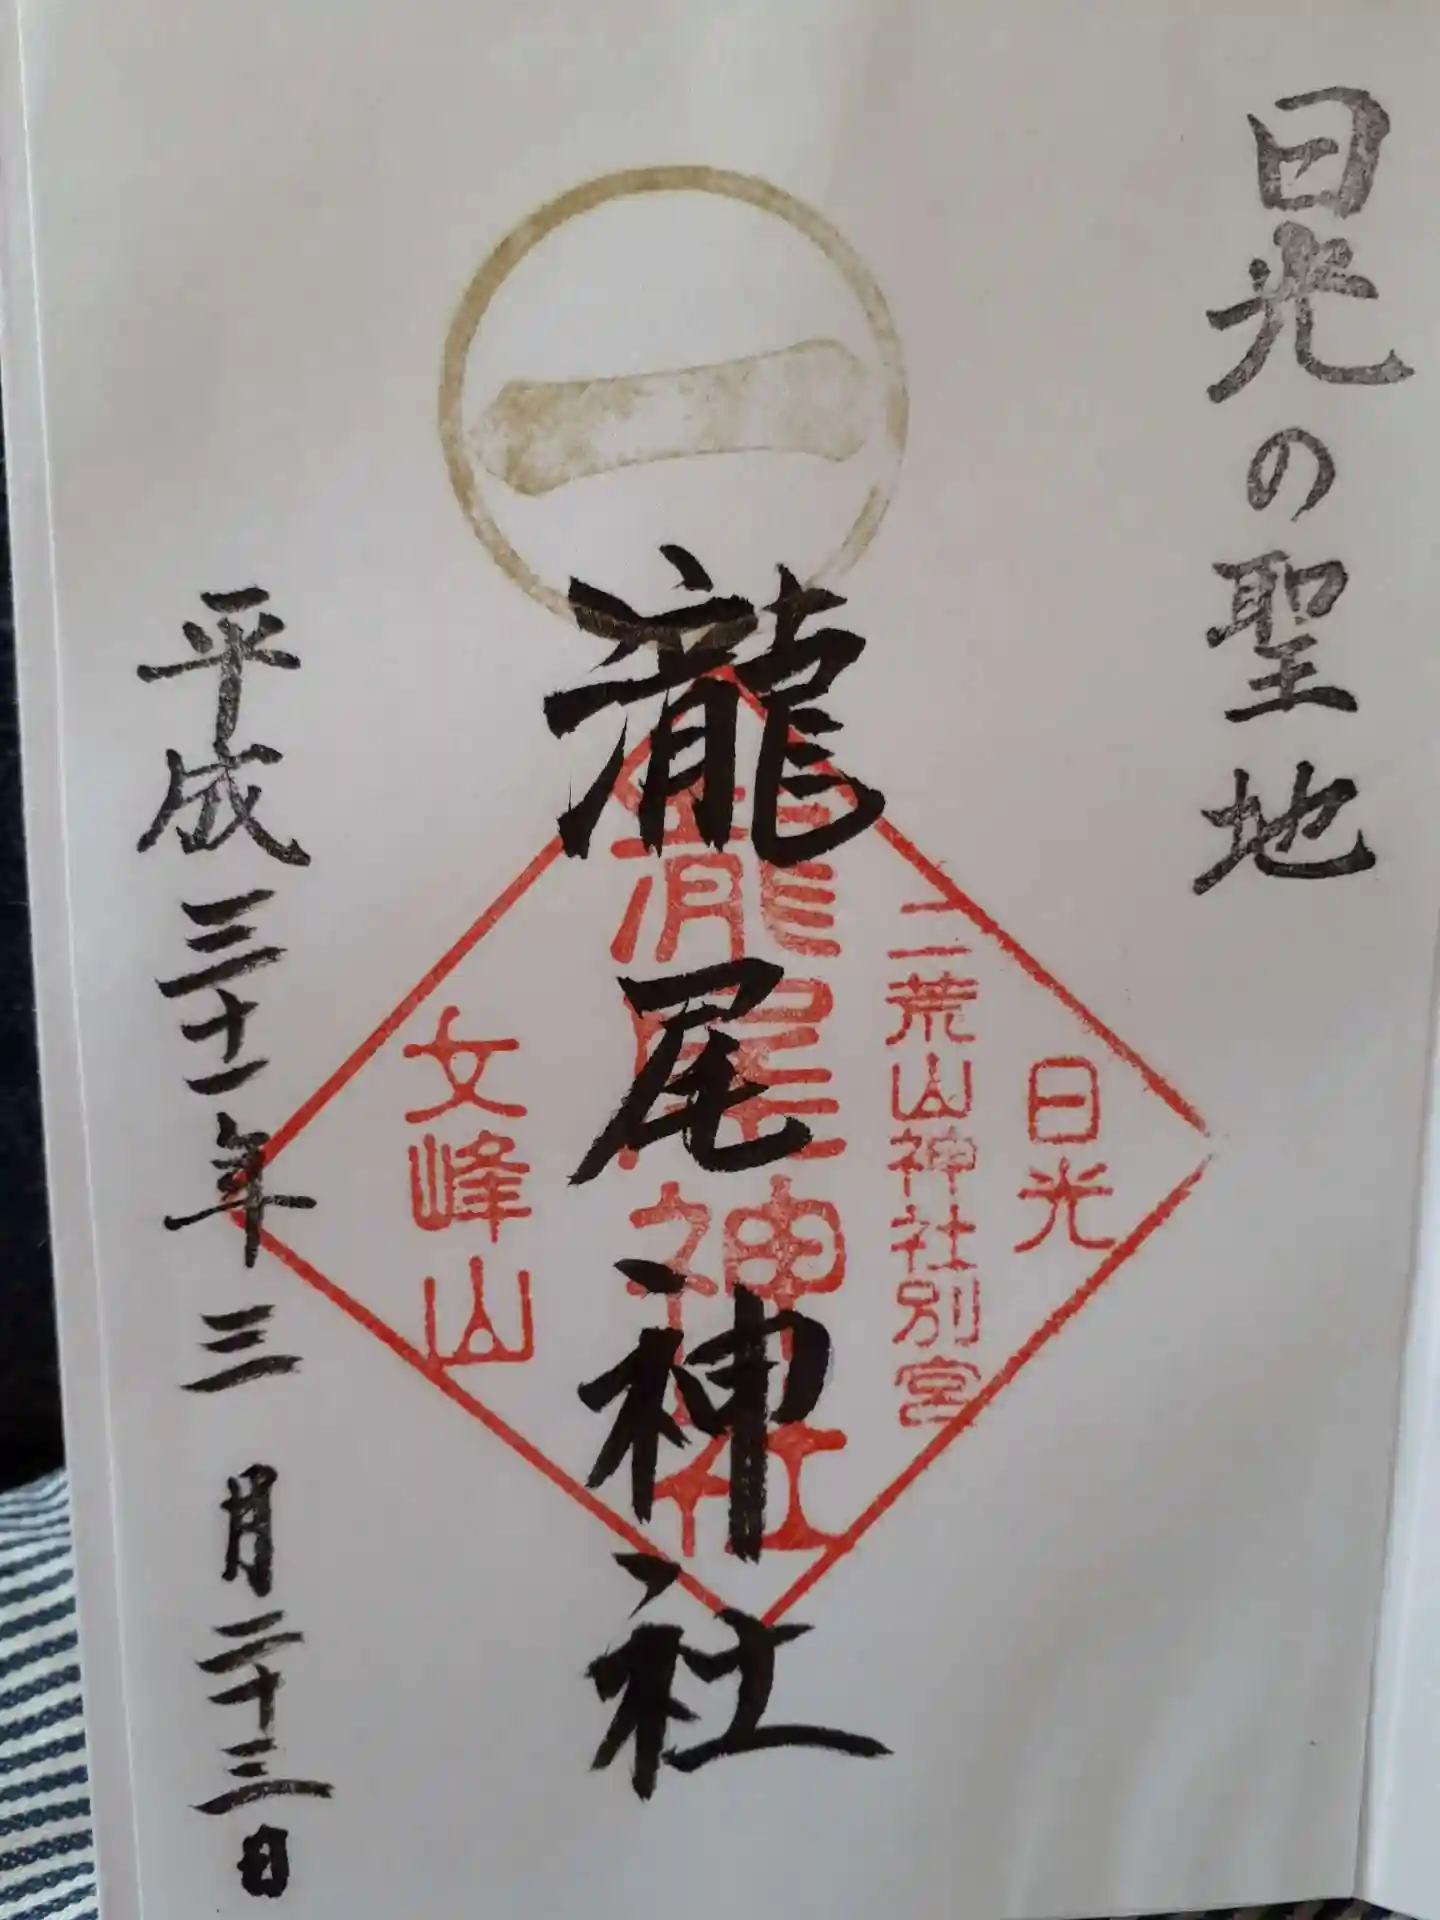 日光の聖地
一
瀧尾神社
日光
二荒山神社別宮
瀧尾神社
文峰山
平成三十一年三月二十三日